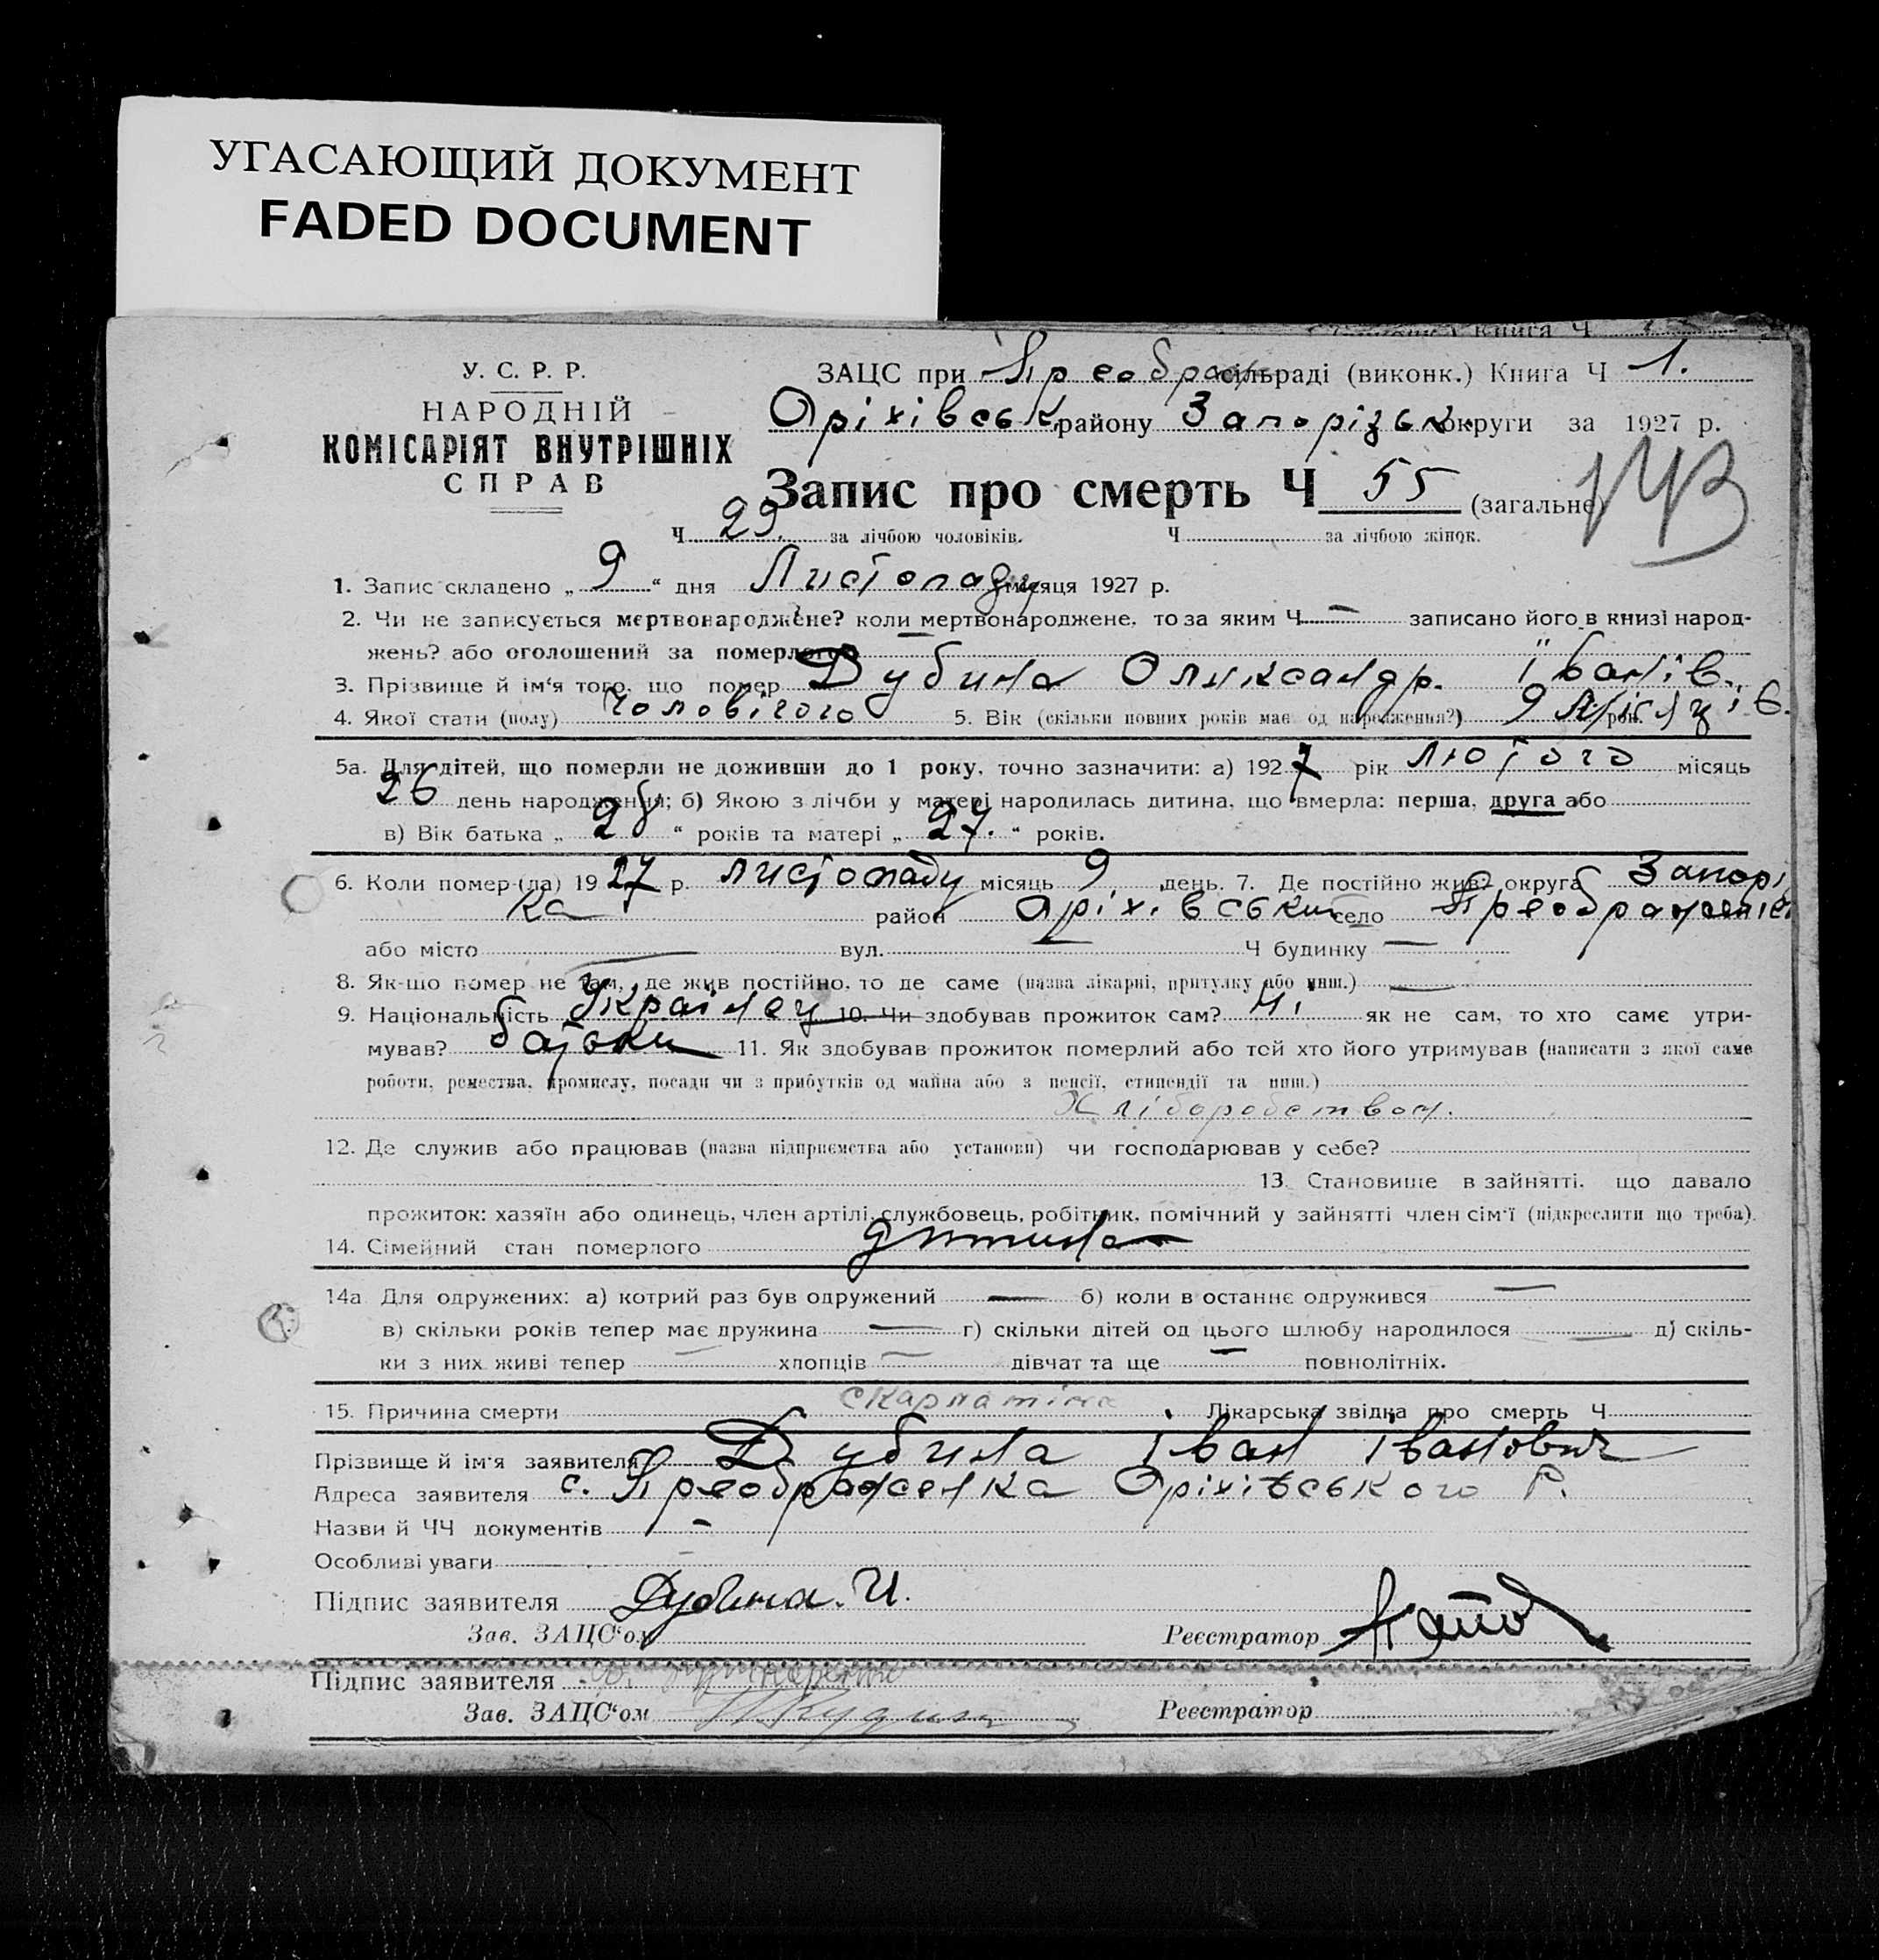 УГАСАЮЩИЙ ДОКУМЕНТ
FADED DOCUMENT
Книга Ч
У. С. Р. Р.
НАРОДНІЙ
КОМІСАРІЯТ ВНУТРІШНІХ
СПРАВ
ЗАЦС при Преображ сільраді (виконк.) Книга Ч 1.
Оріхівськ району Запорізьк. округи за 1927 р.
Запис про смерть Ч 55 (загальне)
Ч 29. за лічбою чоловіків. Ч за лічбою жінок.
1. Запис складено „ 9 “ дня Листопаду місяця 1927 р.
2. Чи не записується мертвонароджене? коли мертвонароджене, то за яким Ч — записано його в книзі народ-
жень? або оголошений за померлого —
3. Прізвище й ім'я того, що помер Дубина Олександр. Іванів.
4. Якої стати (полу) Чоловічого 5. Вік (скільки повних років має од народження?) 9 місяців. рок.
5а. Для дітей, що померли не доживши до 1 року, точно зазначити: а) 1927 рік лютого місяць
26 день народження; б) Якою з лічби у матері народилась дитина, що вмерла: перша, друга або
в) Вік батька „ “ років та матері „ 27. “ років.
6. Коли помер (ла) 1927 р. листопаду місяць 9 день. 7. Де постійно жив? округа Запорі
ка район Оріхівський село Преображенка
або місто — вул. — Ч будинку —
8. Як-що помер не там, де жив постійно, то де саме (назва лікарні, притулку або инш.) —
9. Національність Українець 10. Чи здобував прожиток сам? Ні як не сам, то хто саме утри-
мував? батьки 11. Як здобував прожиток померлий або той хто його утримував (написати з якої саме
роботи, ремества, промислу, посади чи з прибутків од майна або з пенсії, стипендії та инш.)
Хліборобством.
12. Де служив або працював (назва підприємства або установи) чи господарював у себе?
13. Становище в зайнятті, що давало
прожиток: хазяїн або одинець, член артілі, службовець, робітник, помічний у зайнятті член сім'ї (підкреслити що треба).
14. Сімейний стан померлого дитина
14а Для одружених: а) котрий раз був одружений — б) коли в останнє одружився —
в) скільки років тепер має дружина — г) скільки дітей од цього шлюбу народилося — д) скіль-
ки з них живі тепер — хлопців — дівчат та ще — повнолітніх.
15. Причина смерти скарлатіна Лікарська звідка про смерть Ч
Прізвище й ім'я заявителя Дубина Іван Іванович
Адреса заявителя с. Преображенка Оріхівського Р.
Назви й ЧЧ документів —
Особливі уваги
Підпис заявителя Дубина. И.
Зав. ЗАЦС'ом Реєстратор
Підпис заявителя
Зав. ЗАЦС'ом Реєстратор